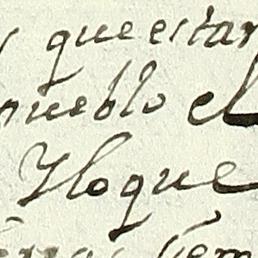 y que estan
pueblo el
Yloque